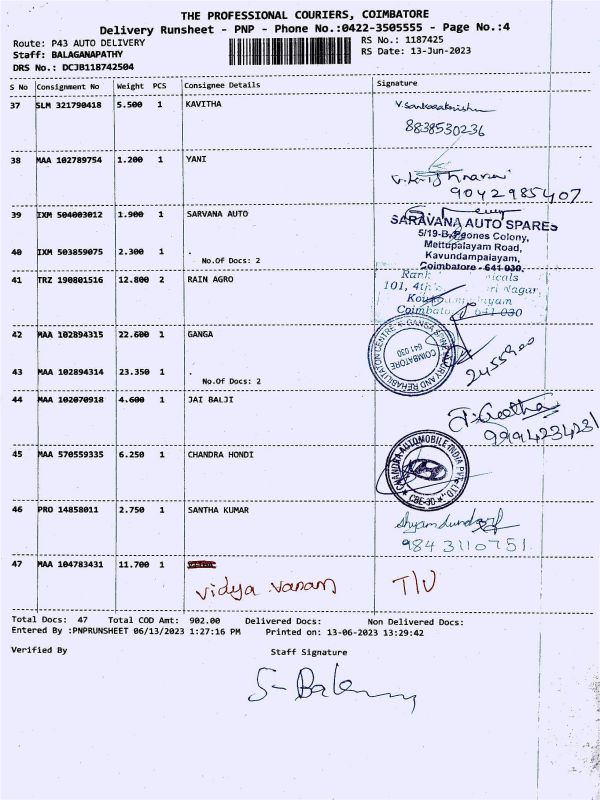 THE PROFESSIONAL COURIERS, COIMBATORE
Delivery Runsheet - PNP - Phone No.:0422-3505555 - Page No.:4
Route: P43 AUTO DELIVERY RS No.: 1187425
Staff: BALAGANAPATHY RS Date: 13-Jun-2023
DRS No.: DCJB118742504
S No Consignment No Weight PCS Consignee Details Signature
37 SLM 321790418 5.500 1 KAVITHA
8838530236
38 MAA 102789754 1.200 1 YANI
9042985407
39 IXM 504003012 1.900 1 SARVANA AUTO
SARAVANA AUTO SPARES
5/19-B, Peones Colony,
Mettupalayam Road,
Kavundampalayam,
Coimbatore - 641 030.
40 IXM 503859075 2.300 1 .
No.Of Docs: 2
41 TRZ 190801516 12.800 2 RAIN AGRO
101,
Nagar
641 030
42 MAA 102894315 22.600 1 GANGA
COIMBATORE
641 030
43 MAA 102894314 23.350 1 .
No.Of Docs: 2
44 MAA 102070918 4.600 1 JAI BALJI
Geetha
9994234231
45 MAA 570559335 6.250 1 CHANDRA HONDI
CHANDRA AUTOMOBILE INDIA PVT LTD
CBE-30
46 PRO 14858011 2.750 1 SANTHA KUMAR
9843110751
47 MAA 104783431 11.700 1
vidya vanam T/U
Total Docs: 47 Total COD Amt: 902.00 Delivered Docs: Non Delivered Docs:
Entered By :PNPRUNSHEET 06/13/2023 1:27:16 PM Printed on: 13-06-2023 13:29:42
Verified By Staff Signature